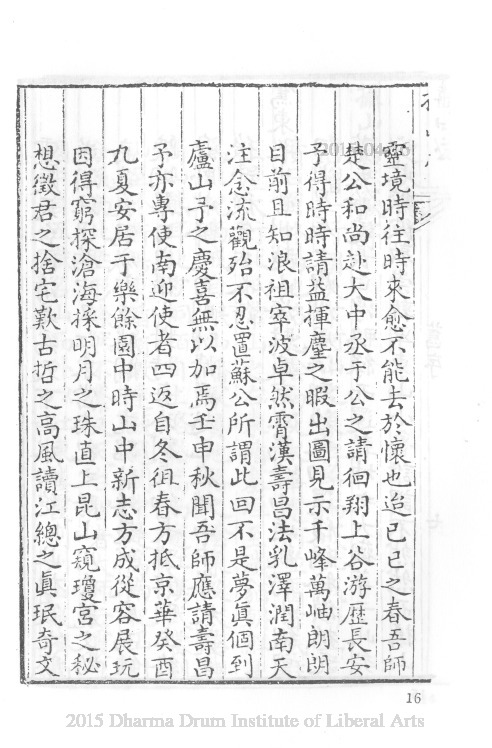 靈境時往時來愈不能去於懷也迨己巳之春吾師
楚公和尚赴大中丞于公之請徊翔上谷游歷長安
予得時時請益揮麈之暇出圖見示千峰萬岫朗朗
目前且知浪祖窣波卓然霄漢壽昌法乳澤潤南天
注念流觀殆不忍置蘇公所謂此回不是夢真個到
廬山予之慶喜無以加焉壬申秋聞吾師應請壽昌
予亦專使南迎使者四返自冬徂春方抵京華癸酉
九夏安居于樂餘園中時山中新志方成從容展玩
因得窮探滄海採明月之珠直上昆山窺瓊宮之秘
想徵君之捨宅歎古哲之高風讀江總之真珉奇文
16
2015 Dharma Drum Institute of Liberal Arts